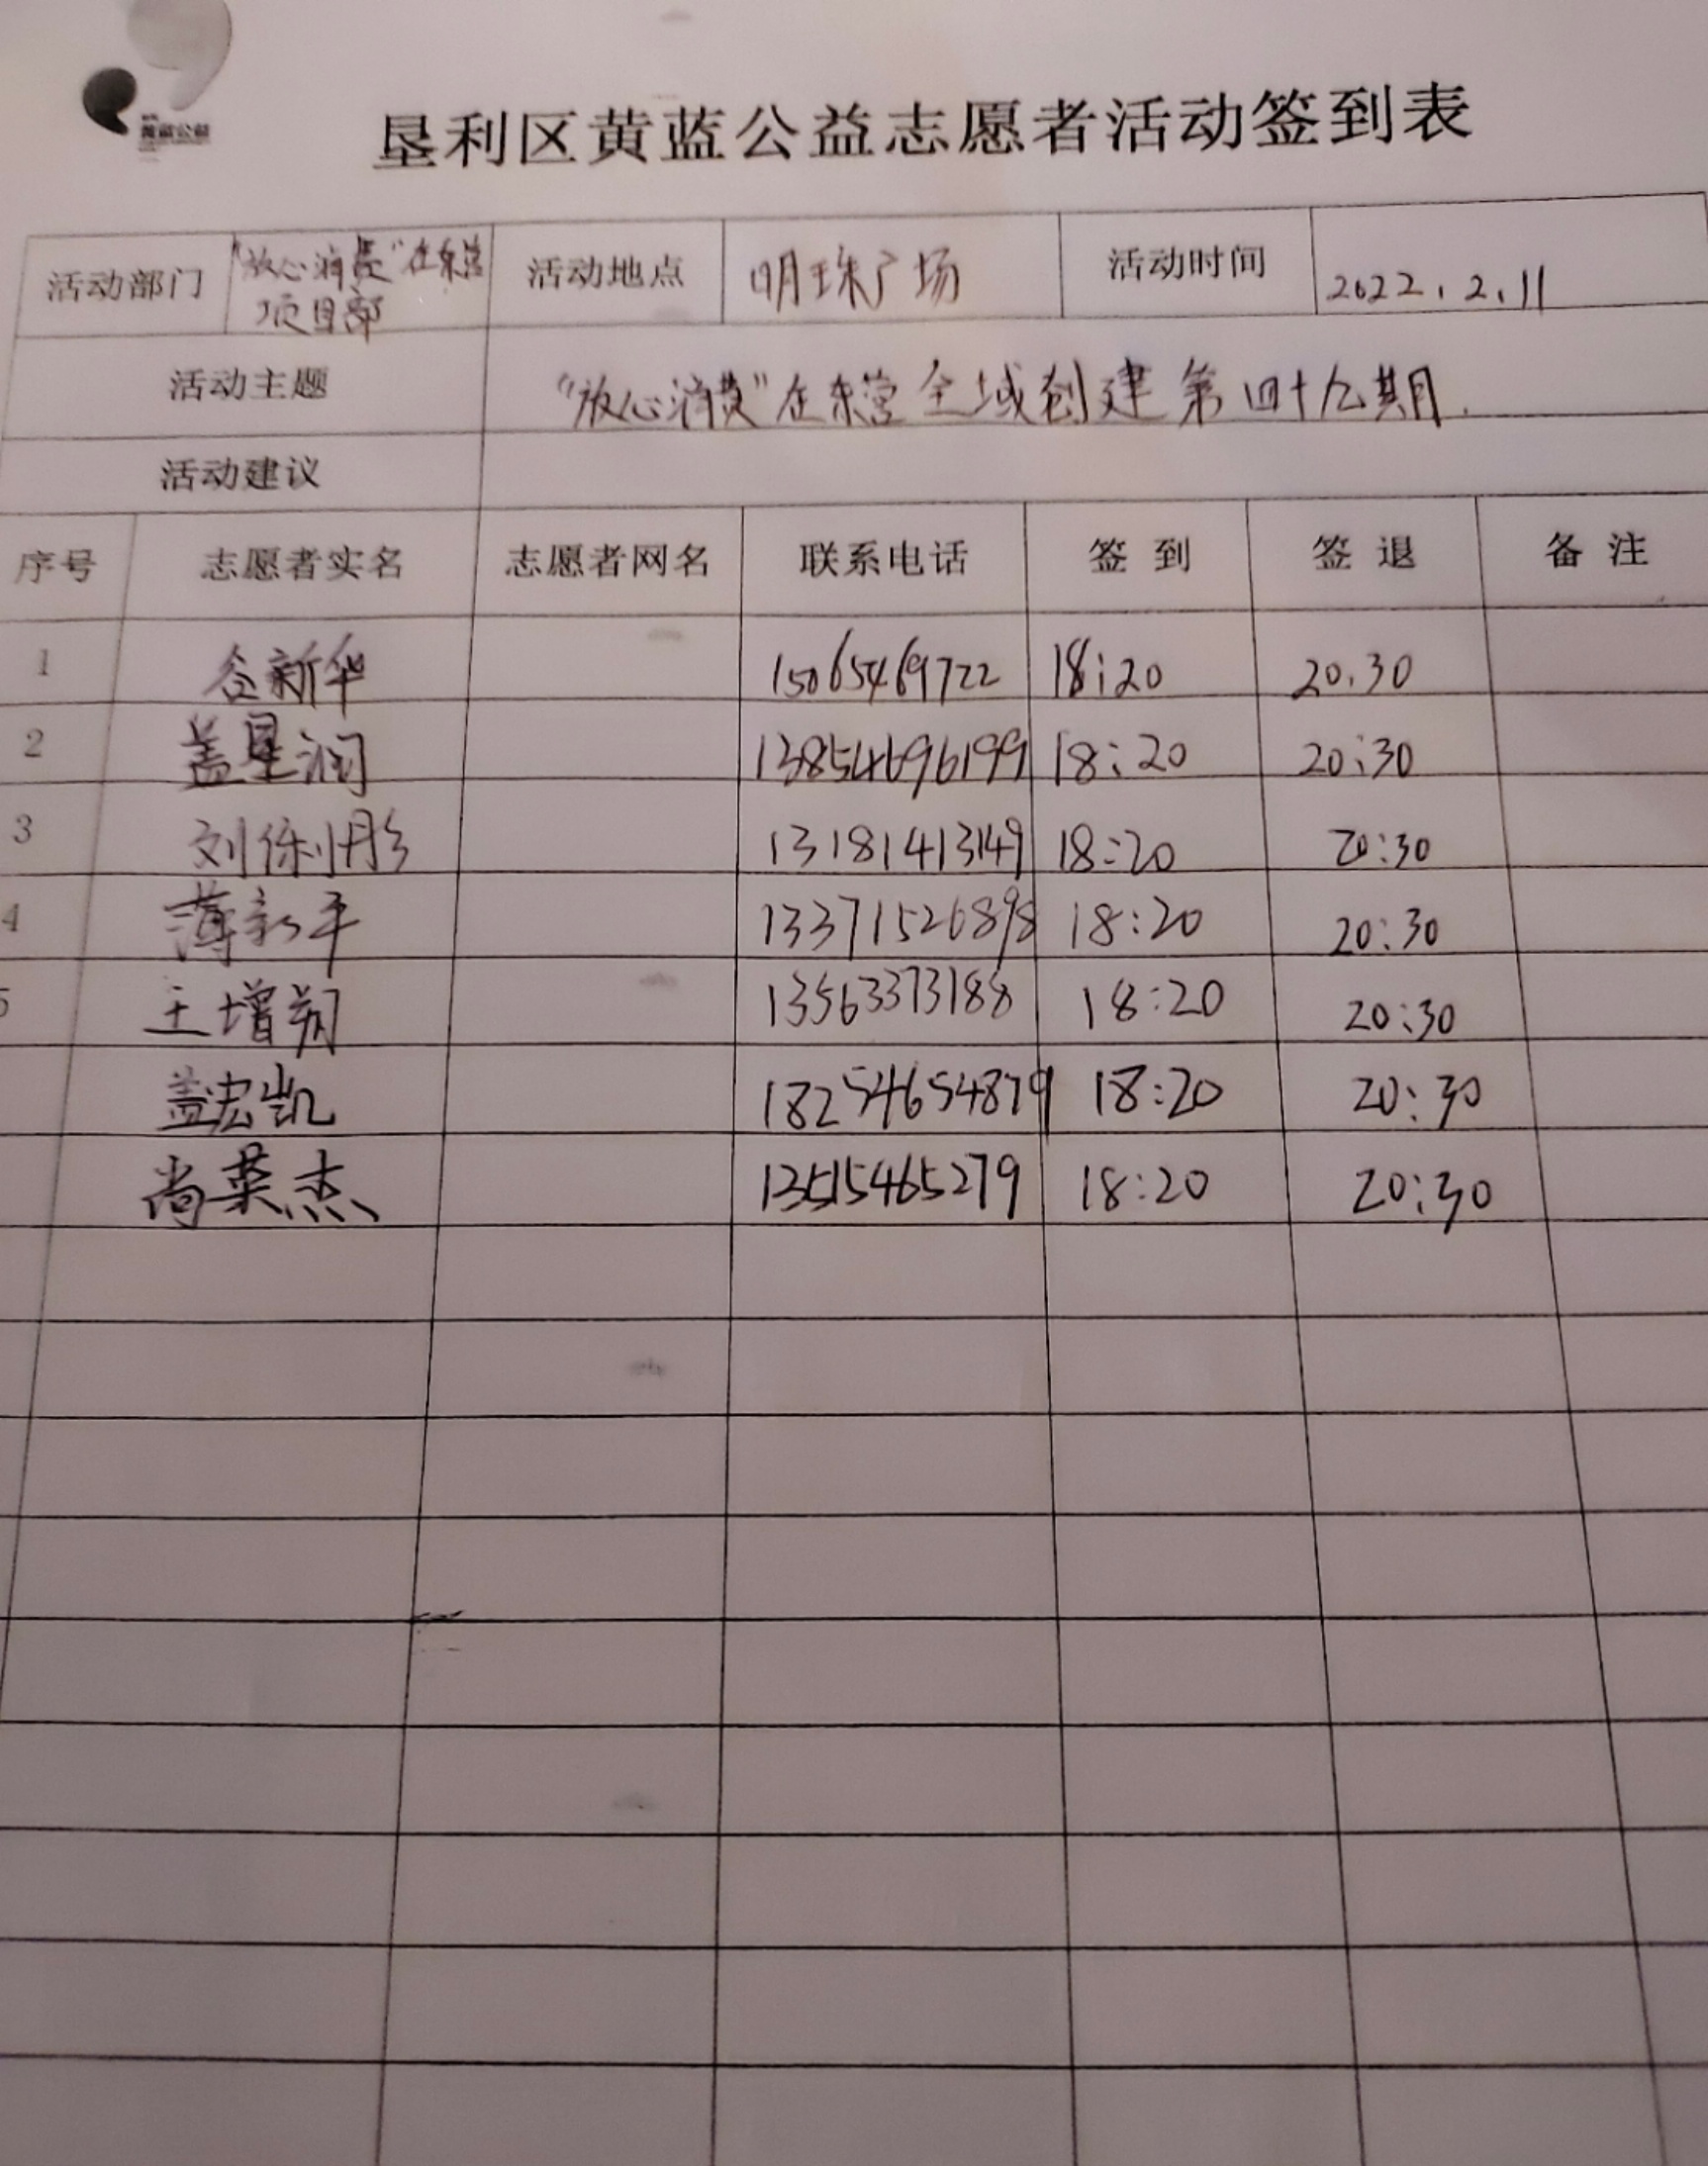 黄蓝公益
垦利区黄蓝公益志愿者活动签到表
活动部门 "放心消费"在东营项目部 活动地点 明珠广场 活动时间 2022.2.11
活动主题 "放心消费"在东营全域创建第四十九期.
活动建议
序号 志愿者实名 志愿者网名 联系电话 签到 签退 备注
1 谷新华 15065469722 18:20 20.30
2 盖星润 13854696199 18:20 20:30
3 刘俐彤 13181413149 18:20 20:30
4 薄新平 13371526898 18:20 20:30
5 王增朔 13563373188 18:20 20:30
盖宏凯 18254654879 18:20 20:30
尚英杰 13515465279 18:20 20:30